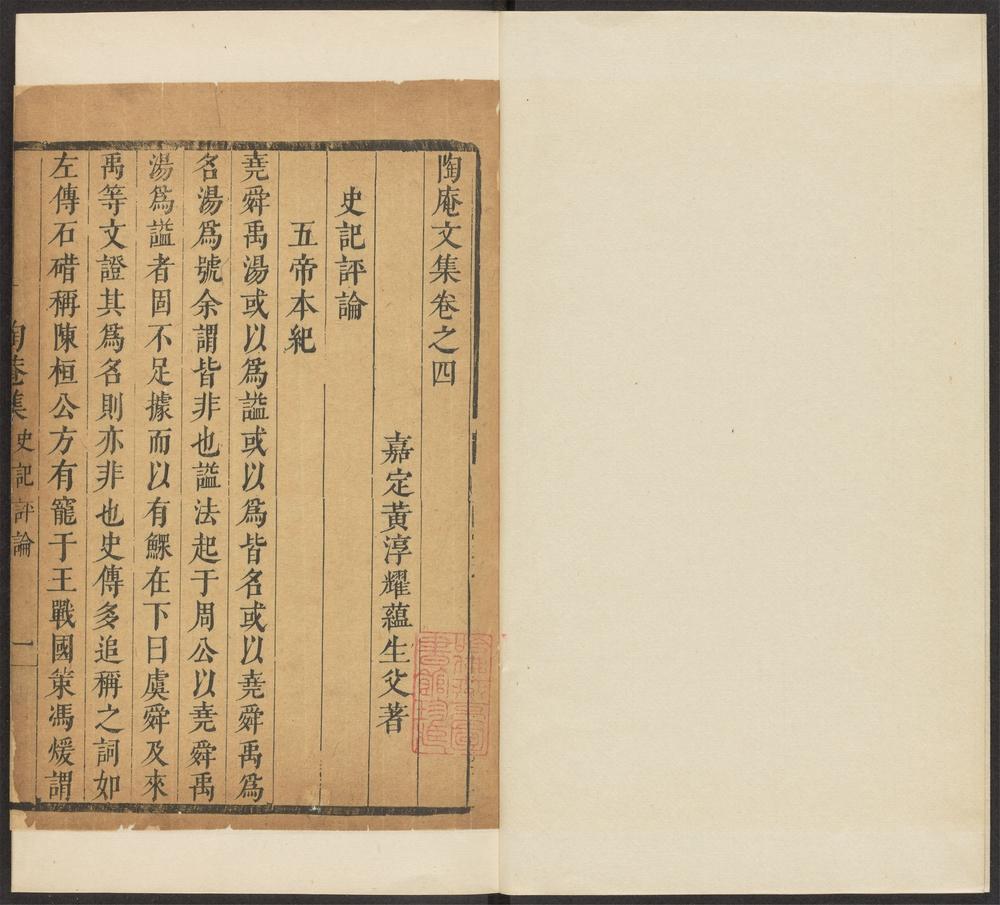 陶庵文集卷之四
嘉定黃淳耀蘊生父著
史記評論
五帝本紀
堯舜禹湯或以爲謚或以爲皆名或以堯舜禹爲
名湯爲號余謂皆非也謚法起于周公以堯舜禹
湯爲謚者固不足據而以有鰥在下曰虞舜及來
禹等文證其爲名則亦非也史傳多追稱之詞如
左傳石碏稱陳桓公方有寵于王戰國策馮煖謂
陶菴集 史記評論 一